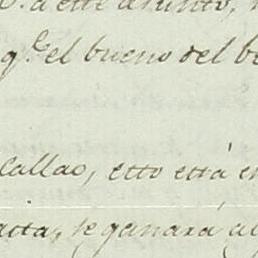 á este asunto,
q.e el bueno del b
Callao, esto está e
acta, se ganará a